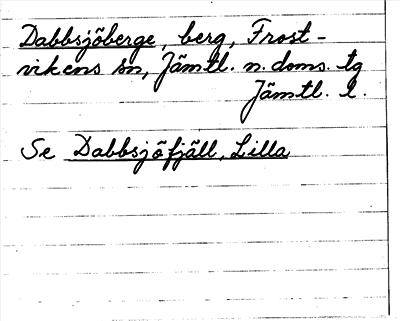 Dabbsjöberge, berg, Frost-
vikens sn, Jämtl. n. doms. tg
Jämtl. l.
Se Dabbsjöfjäll, Lilla